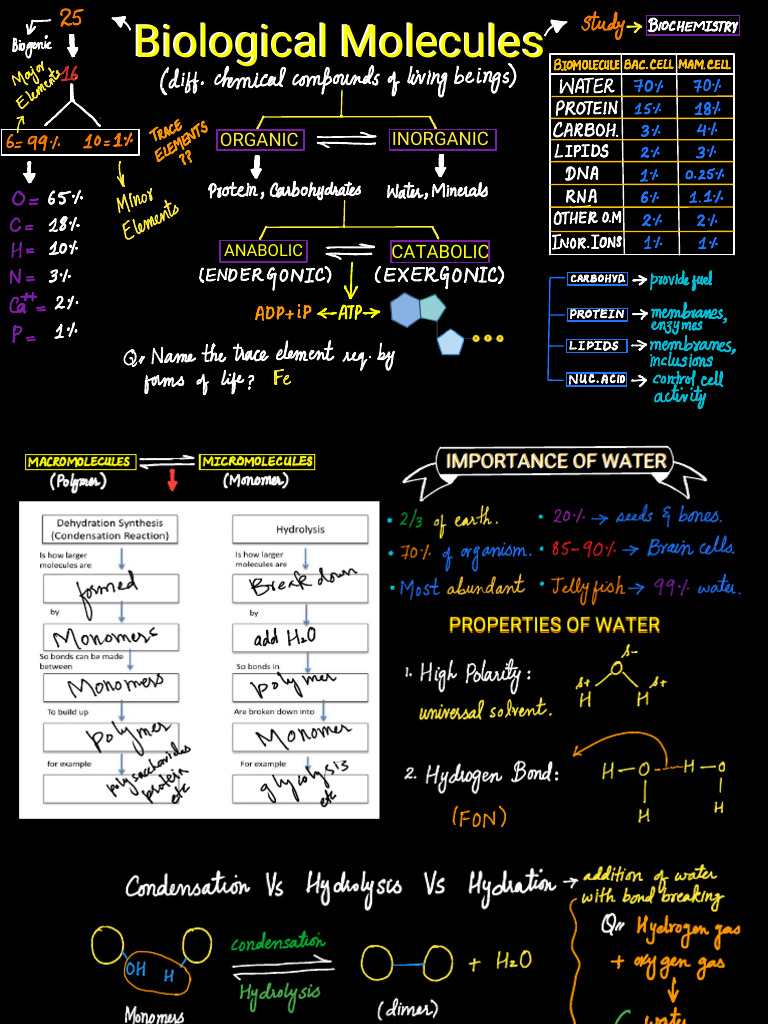 25
Biogenic
Major Elements
16
6=99%
10=1%
TRACE ELEMENTS ??
Minor Elements
O = 65%
C = 18%
H = 10%
N = 3%
Ca++ = 2%
P = 1%
Biological Molecules
(diff. chemical compounds of living beings)
ORGANIC
INORGANIC
Protein, Carbohydrates
Water, Minerals
ANABOLIC
CATABOLIC
(ENDERGONIC)
(EXERGONIC)
ADP+iP ← ATP →
Q:- Name the trace element req. by
forms of life? Fe
Study → BIOCHEMISTRY
BIOMOLECULE BAC.CELL MAM.CELL
WATER 70% 70%
PROTEIN 15% 18%
CARBOH. 3% 4%
LIPIDS 2% 3%
DNA 1% 0.25%
RNA 6% 1.1%
OTHER O.M 2% 2%
INOR.IONS 1% 1%
CARBOHYD. → provide fuel
PROTEIN → membranes,
enzymes
LIPIDS → membranes,
inclusions
NUC.ACID → control cell
activity
MACROMOLECULES
MICROMOLECULES
(Polymer)
(Monomer)
Dehydration Synthesis
(Condensation Reaction)
Is how larger
molecules are
formed
by
Monomers
So bonds can be made
between
Monomers
To build up
polymer
for example
polysaccharides
protein
etc
Hydrolysis
Is how larger
molecules are
Break down
by
add H₂O
So bonds in
polymer
Are broken down into
Monomer
For example
glycolysis
etc
IMPORTANCE OF WATER
• 2/3 of earth.
• 20% → seeds & bones.
• 70% of organism.
• 85-90% → Brain cells.
• Most abundant
• Jelly fish → 99% water.
PROPERTIES OF WATER
1. High Polarity:
universal solvent.
δ-
O
δ+ δ+
H H
2. Hydrogen Bond:
(FON)
H-O---H-O
H H
Condensation Vs Hydrolysis Vs Hydration → addition of water
with bond breaking
OH H
Monomers
condensation
Hydrolysis
+ H₂O
(dimer)
Q:- Hydrogen gas
+ oxygen gas
↓
water